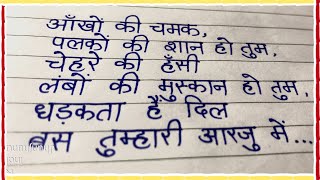 आँखों की चमक,
पलकों की शान हो तुम,
चेहरे की हँसी
लंबों की मुस्कान हो तुम,
धड़कता हैं दिल
बस तुम्हारी आरजु में...